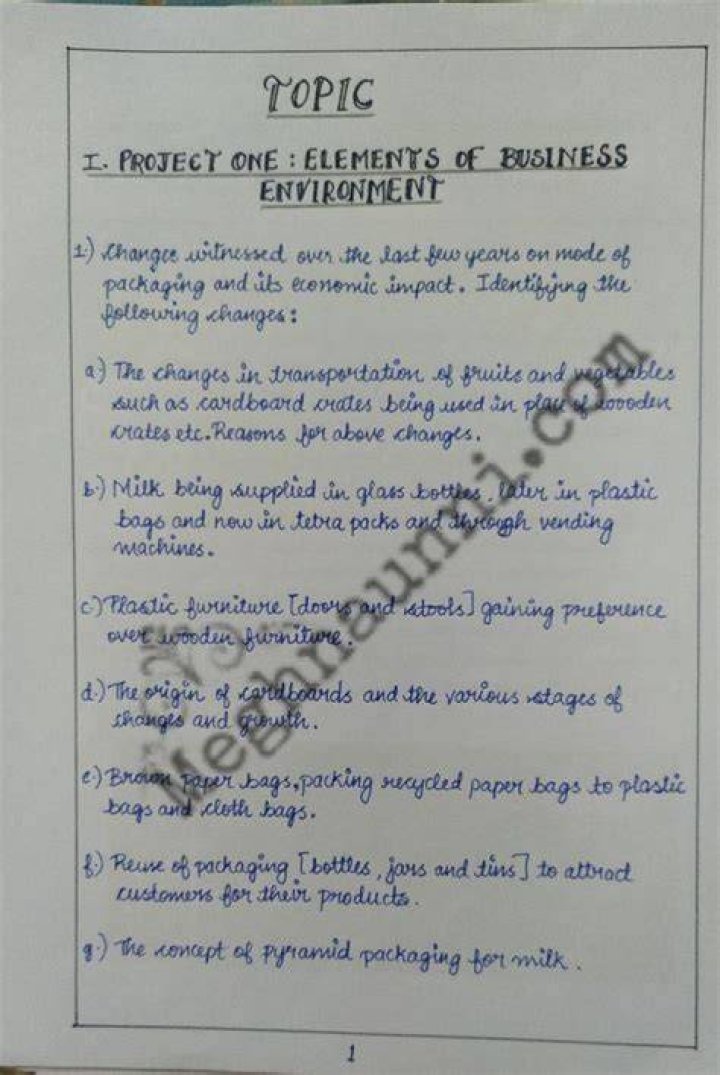 TOPIC
I. PROJECT ONE : ELEMENTS OF BUSINESS
ENVIRONMENT
1.) Changes witnessed over the last few years on mode of
packaging and its economic impact. Identifying the
following changes :
a.) The changes in transportation of fruits and vegetables
such as cardboard crates being used in place of wooden
crates etc. Reasons for above changes.
b.) Milk being supplied in glass bottles, later in plastic
bags and now in tetra packs and through vending
machines.
c.) Plastic furniture [doors and stools] gaining preference
over wooden furniture.
d.) The origin of cardboards and the various stages of
changes and growth.
e.) Brown paper bags, packing recycled paper bags to plastic
bags and cloth bags.
f.) Reuse of packaging [bottles, jars and tins] to attract
customers for their products.
g.) The concept of pyramid packaging for milk.
1
Meghnaunni.com